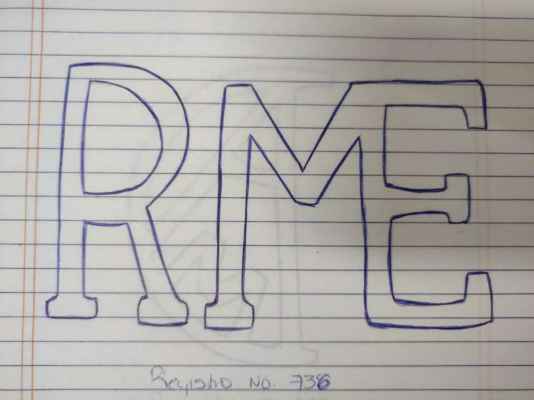 RME
Registro No. 736